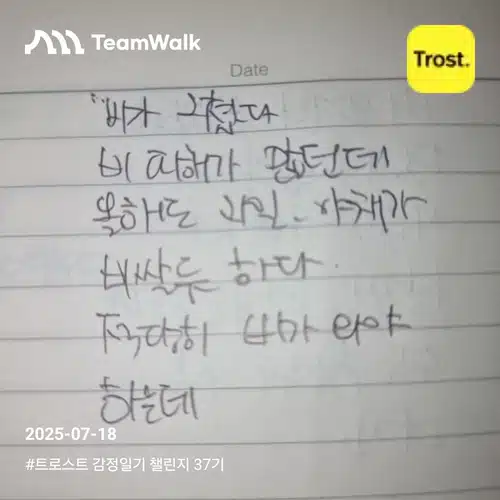 TeamWalk
Trost.
Date
"비가 그쳤다
비 피해가 많던데
올해도 과일. 야채가
비쌀듯 하다.
적당히 비가 와야
하는데
2025-07-18
#트로스트 감정일기 챌린지 37기